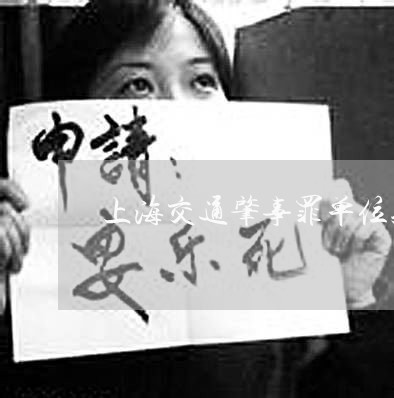 申請：
上海交通肇事罪单位
安乐死